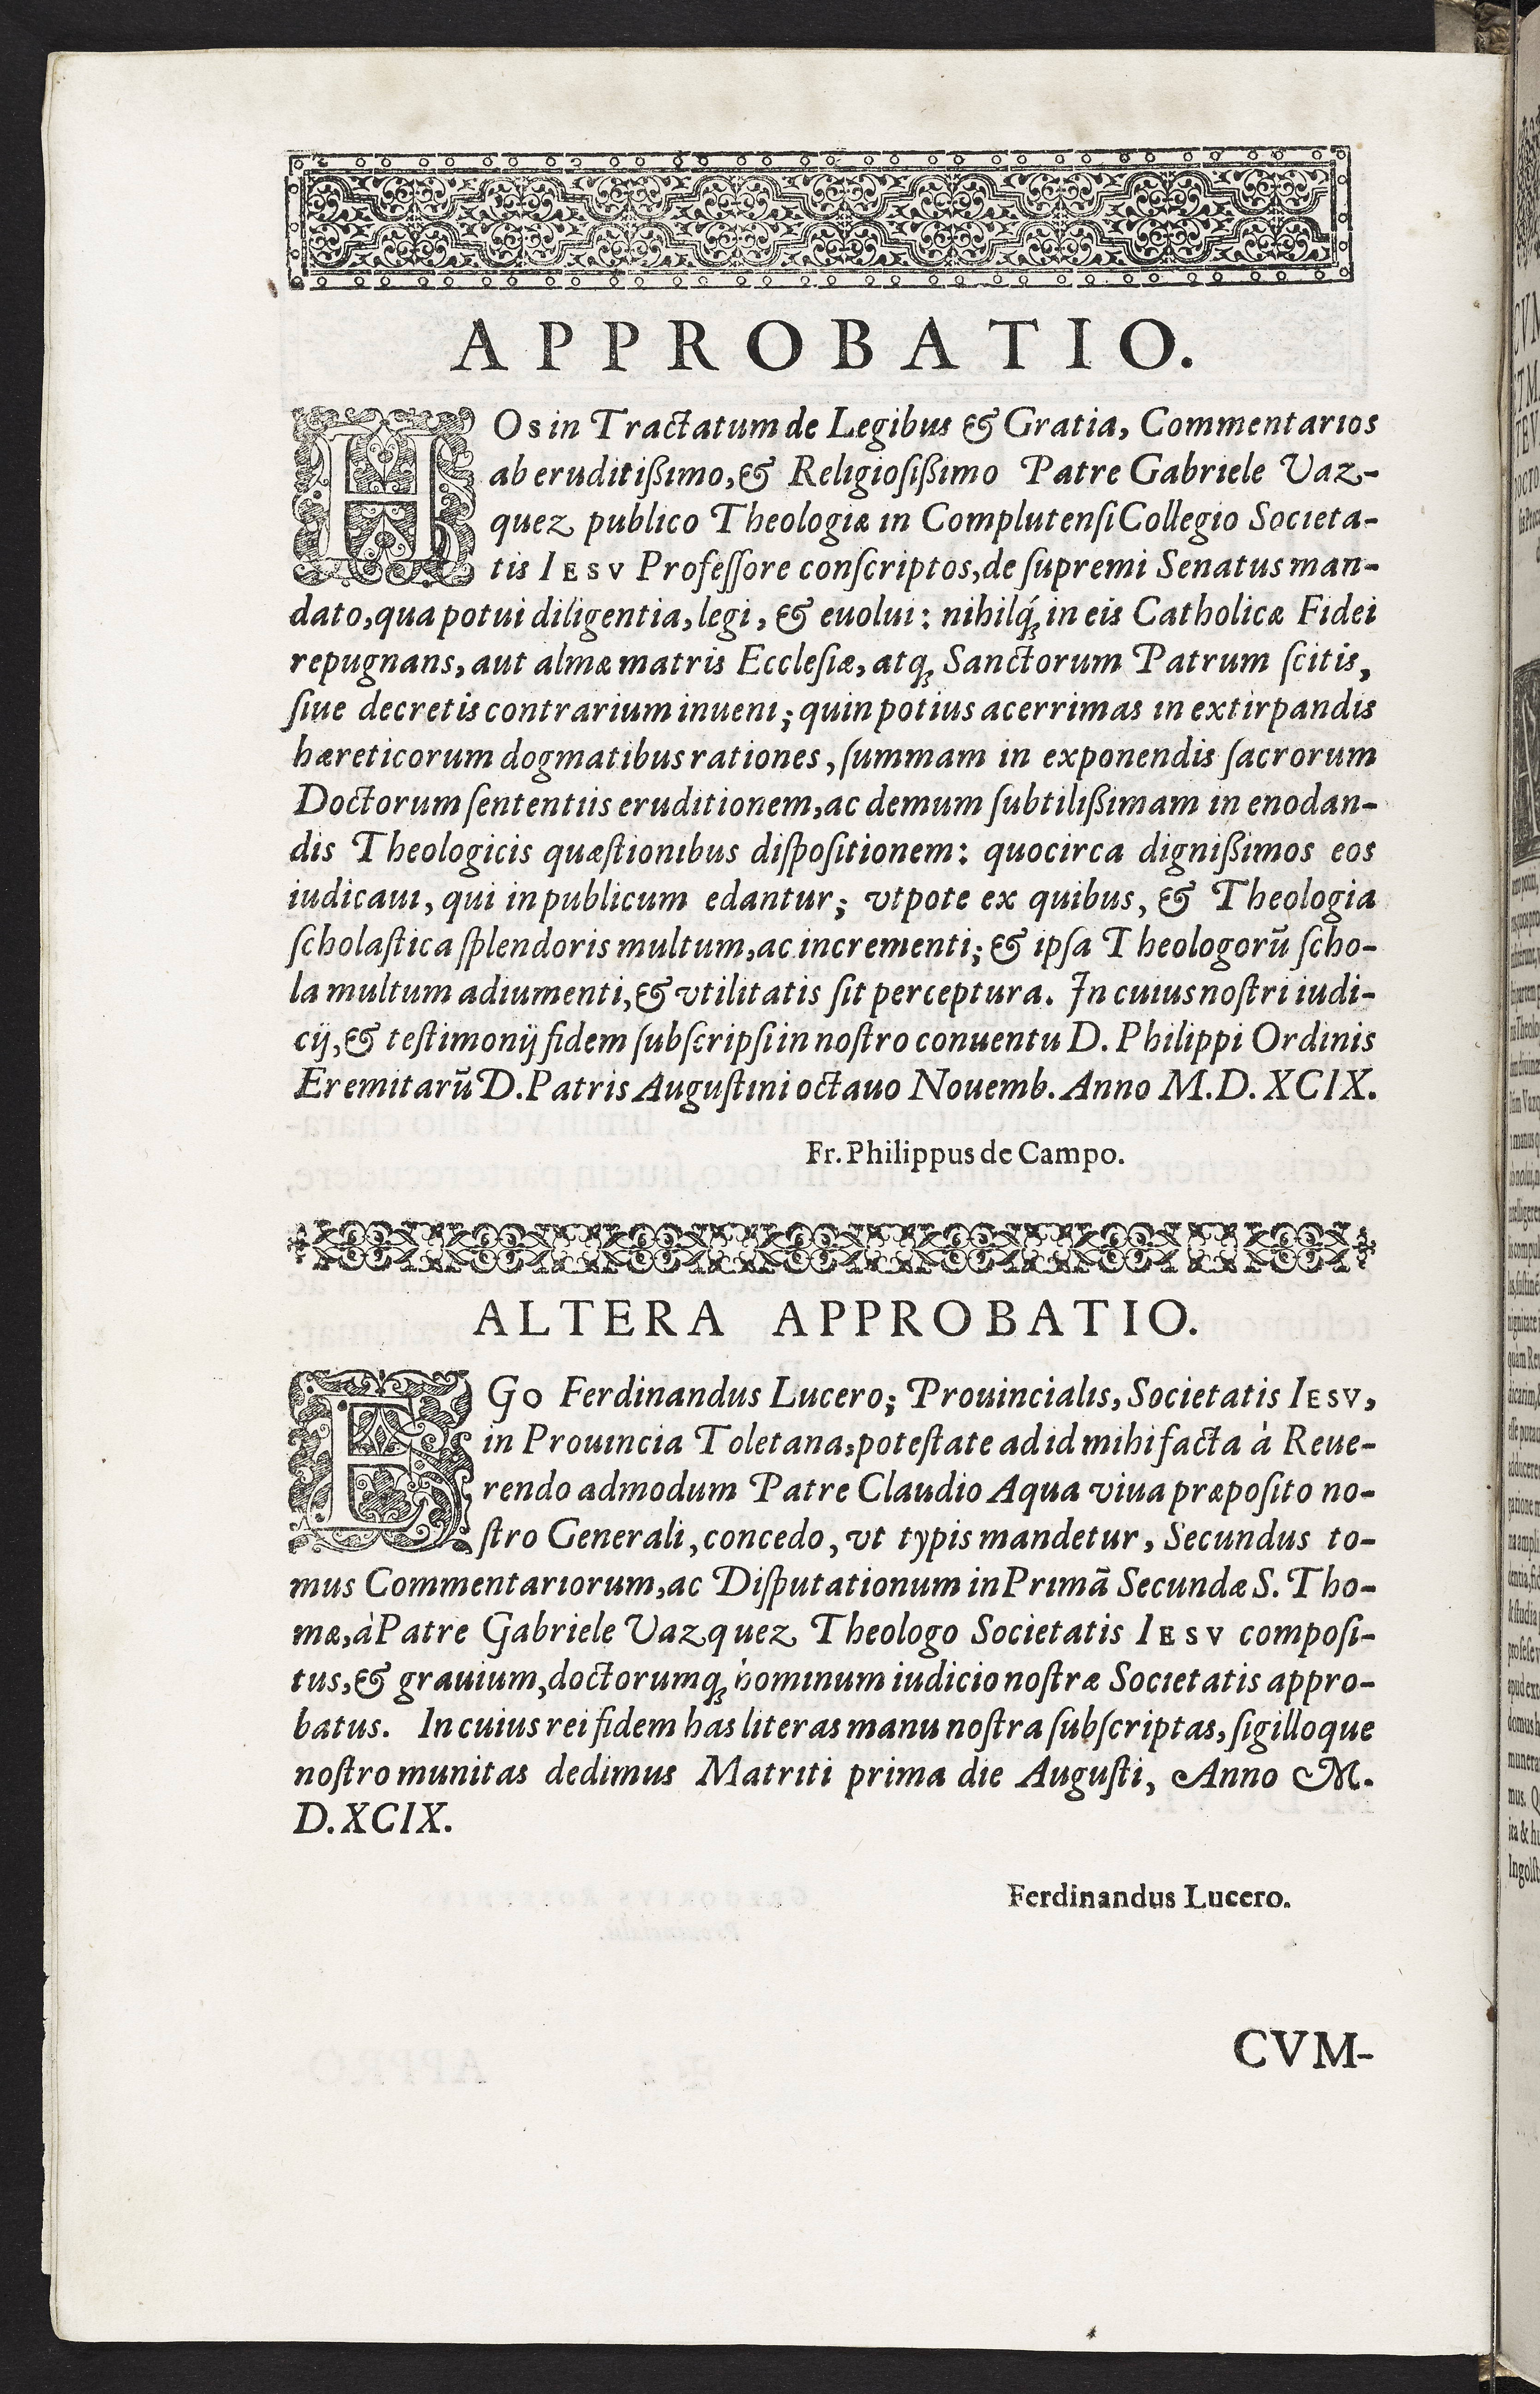 APPROBATIO.
HOs in Tractatum de Legibus & Gratia, Commentarios
ab eruditißimo, & Religiosißimo Patre Gabriele Vaz-
quez publico Theologiæ in Complutensi Collegio Societa-
tis IESV Professore conscriptos, de supremi Senatus man-
dato, qua potui diligentia, legi, & euolui: nihilq́ꝫ in eis Catholicæ Fidei
repugnans, aut almæ matris Ecclesiæ, atqꝫ Sanctorum Patrum scitis,
siue decretis contrarium inueni; quin potius acerrimas in extirpandis
hæreticorum dogmatibus rationes, summam in exponendis sacrorum
Doctorum sententiis eruditionem, ac demum subtilißimam in enodan-
dis Theologicis quæstionibus dispositionem: quocirca dignißimos eos
iudicaui, qui in publicum edantur; vtpote ex quibus, & Theologia
scholastica splendoris multum, ac incrementi; & ipsa Theologorũ scho-
la multum adiumenti, & vtilitatis sit perceptura. In cuius nostri iudi-
cij, & testimonij fidem subscripsi in nostro conuentu D. Philippi Ordinis
Eremitarũ D. Patris Augustini octauo Nouemb. Anno M.D.XCIX.
Fr. Philippus de Campo.
ALTERA APPROBATIO.
EGo Ferdinandus Lucero; Prouincialis, Societatis IESV,
in Prouincia Toletana, potestate ad id mihi facta à Reue-
rendo admodum Patre Claudio Aqua viua præposito no-
stro Generali, concedo, vt typis mandetur, Secundus to-
mus Commentariorum, ac Disputationum in Primã Secundæ S. Tho-
mæ, à Patre Gabriele Vazquez Theologo Societatis IESV composi-
tus, & grauium, doctorumqꝫ hominum iudicio nostræ Societatis appro-
batus. In cuius rei fidem has literas manu nostra subscriptas, sigilloque
nostro munitas dedimus Matriti prima die Augusti, Anno M.
D.XCIX.
Ferdinandus Lucero.
CVM-